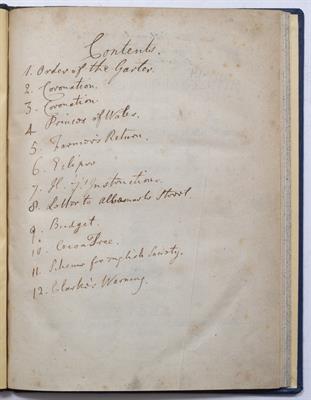 Contents.
1. Order of the Garter.
2. Coronation.
3. Coronation.
4 Princes of Wales.
5. Farmer's Return.
6. Eclipse
7. Instructions.
8. Letter to Albemarle Street
9. Budget.
10. Cocoa Tree.
11. Scheme for English Society.
12. Clarke's Warning.